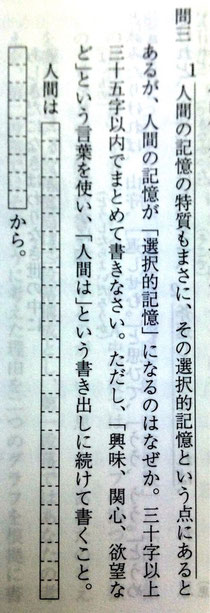 問三 1 人間の記憶の特質もまさに、その選択的記憶という点にあると
あるが、人間の記憶が「選択的記憶」になるのはなぜか。三十字以上
三十五字以内でまとめて書きなさい。ただし、「興味、関心、欲望な
ど」という言葉を使い、「人間は」という書き出しに続けて書くこと。
人間は
から。